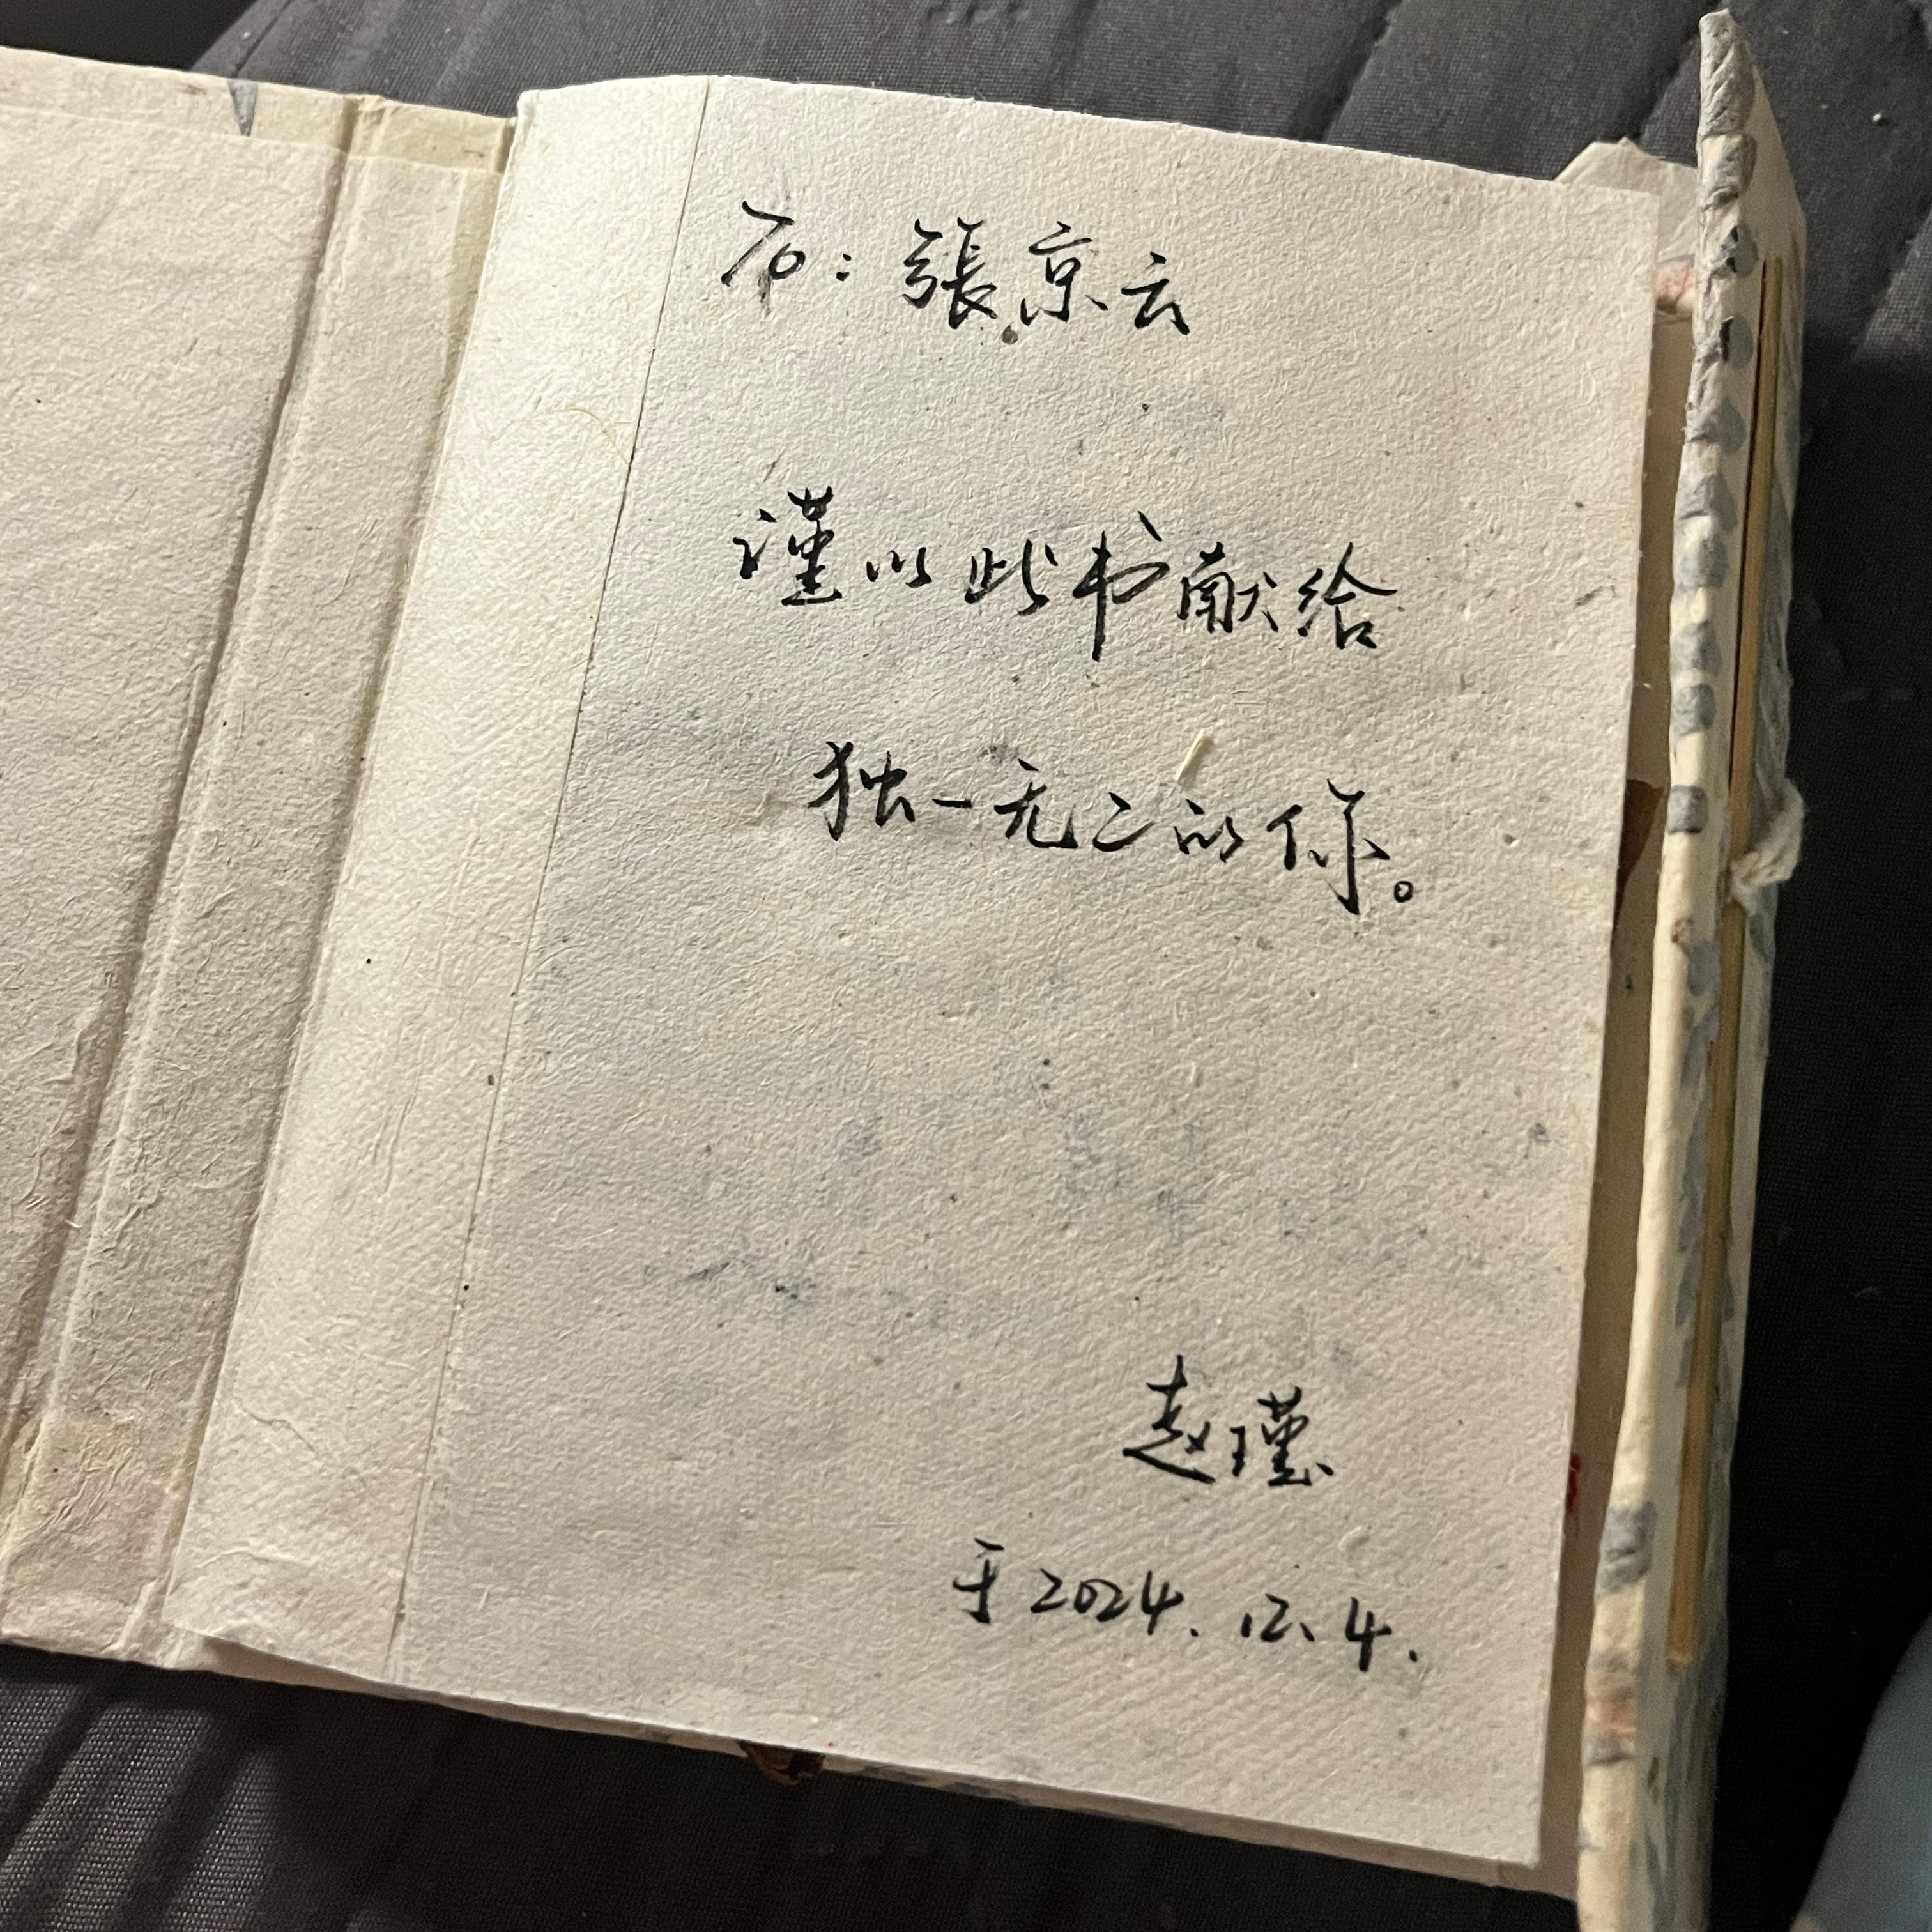 石：張京云
谨以此书献给
独一无二的你。
赵瑾
于2024.12.4.